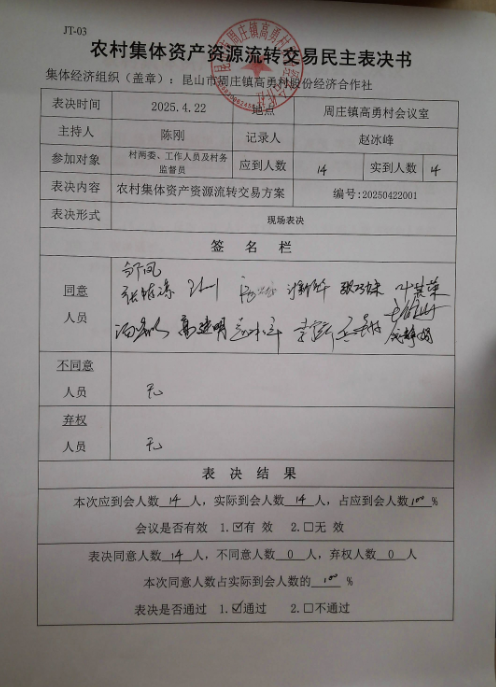 JT-03
农村集体资产资源流转交易民主表决书
集体经济组织（盖章）：昆山市周庄镇高勇村股份经济合作社
表决时间 2025.4.22 地点 周庄镇高勇村会议室
主持人 陈刚 记录人 赵冰峰
参加对象 村两委、工作人员及村务监督员 应到人数 14 实到人数 14
表决内容 农村集体资产资源流转交易方案 编号:20250422001
表决形式 现场表决
签名栏
同意
人员
高建明
不同意
人员 无
弃权
人员 无
表决结果
本次应到会人数 14 人，实际到会人数 14 人，占应到会人数 100 %
会议是否有效 1.☑有 效 2.□无 效
表决同意人数 14 人，不同意人数 0 人，弃权人数 0 人
本次同意人数占实际到会人数的 100 %
表决是否通过 1.☑通过 2.□不通过